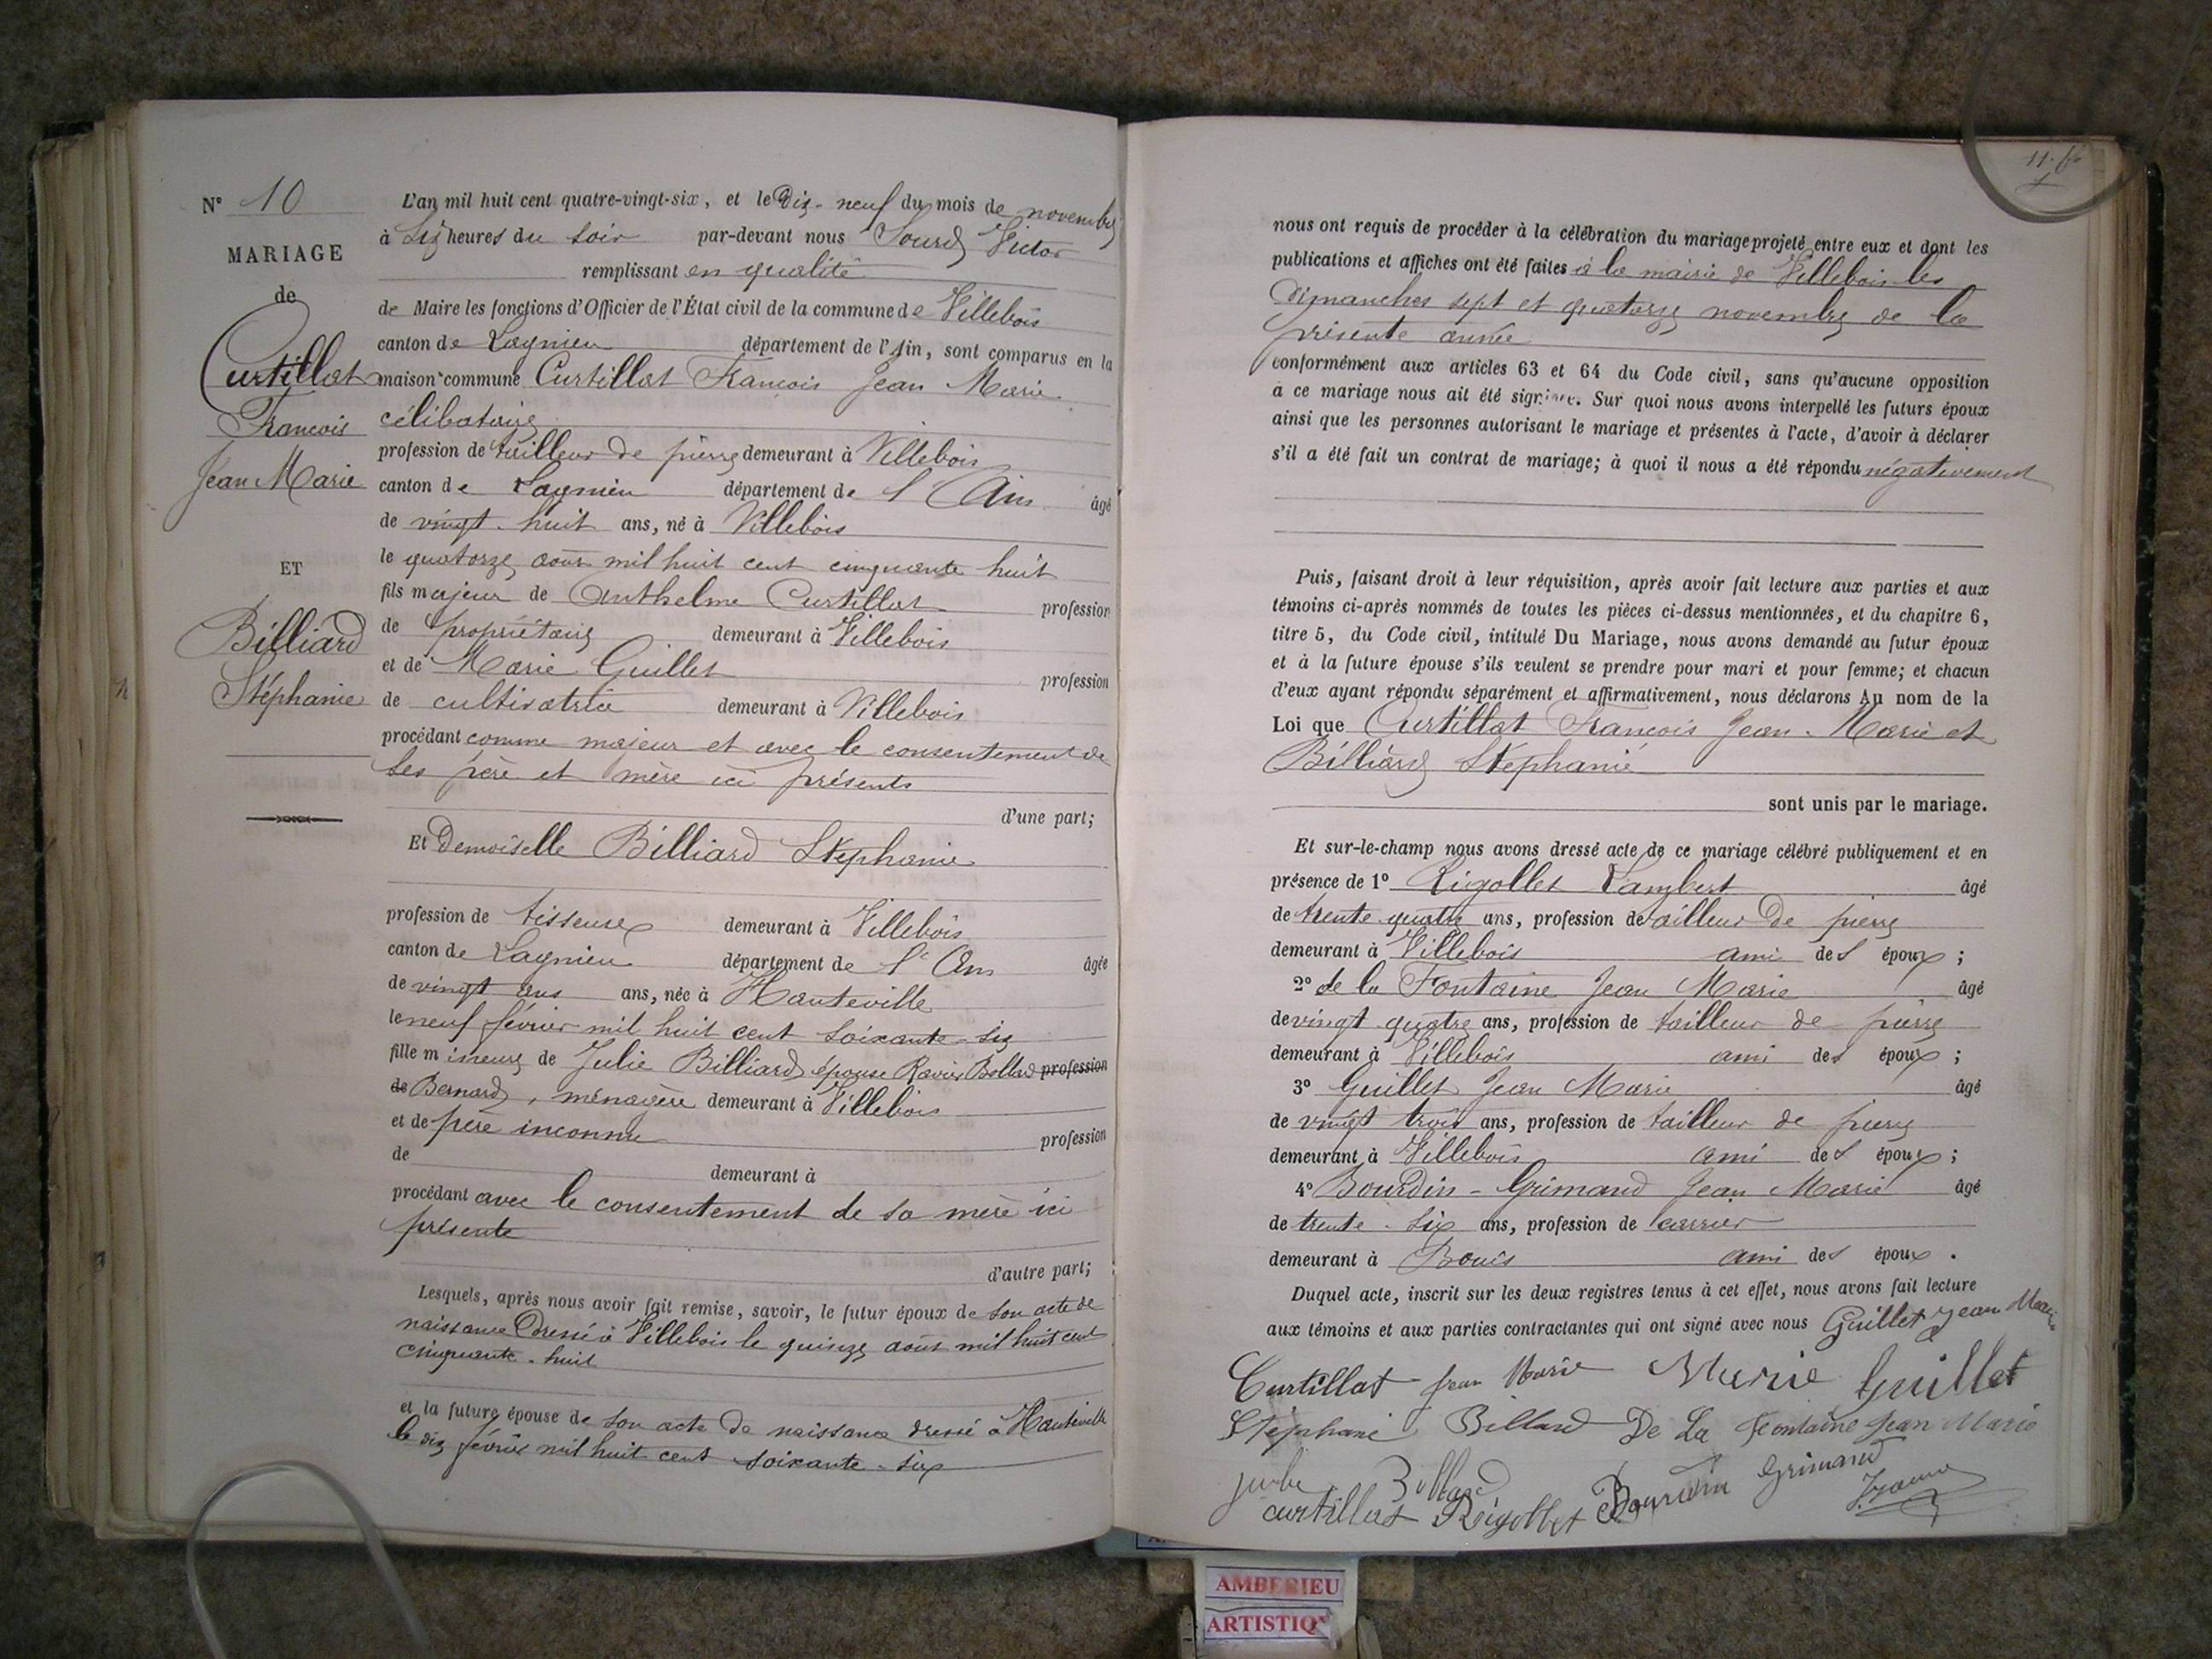 N° 10
MARIAGE
de
Curtillat
François
Jean Marie
ET
Billiard
Stéphanie
L'an mil huit cent quatre-vingt-six, et le Dix-neuf du mois de novembre
à Six heures du soir par-devant nous Sourd Victor
remplissant en qualité
de Maire les fonctions d'Officier de l'État civil de la commune de Villebois
canton de Lagnieu département de l'Ain, sont comparus en la
maison commune Curtillat François Jean Marie
célibataire
profession de tailleur de pierre demeurant à Villebois
canton de Lagnieu département de l'Ain âgé
de vingt-huit ans, né à Villebois
le quatorze août mil huit cent cinquante huit
fils majeur de Anthelme Curtillat profession
de propriétaire demeurant à Villebois
et de Marie Guillet profession
de cultivatrice demeurant à Villebois
procédant comme majeur et avec le consentement de
ses père et mère ici présents
d'une part;
Et Demoiselle Billiard Stéphanie
profession de tisseuse demeurant à Villebois
canton de Lagnieu département de l'Ain âgée
de vingt ans ans, née à Hauteville
le neuf février mil huit cent soixante-six
fille mineure de Julie Billiard épouse Ravier Bollard profession
de Bernard, ménagère demeurant à Villebois
et de père inconnu profession
de demeurant à
procédant avec le consentement de sa mère ici
présente
d'autre part;
Lesquels, après nous avoir fait remise, savoir, le futur époux de son acte de
naissance Dressé à Villebois le quinze août mil huit cent
cinquante-huit
et la future épouse de son acte de naissance dressé à Hauteville
le dix février mil huit cent soixante-six
11.
nous ont requis de procéder à la célébration du mariage projeté entre eux et dont les
publications et affiches ont été faites à la mairie de Villebois les
Dimanches sept et quatorze novembre de la
présente année
conformément aux articles 63 et 64 du Code civil, sans qu'aucune opposition
à ce mariage nous ait été signifiée. Sur quoi nous avons interpellé les futurs époux
ainsi que les personnes autorisant le mariage et présentes à l'acte, d'avoir à déclarer
s'il a été fait un contrat de mariage; à quoi il nous a été répondu négativement
Puis, faisant droit à leur réquisition, après avoir fait lecture aux parties et aux
témoins ci-après nommés de toutes les pièces ci-dessus mentionnées, et du chapitre 6,
titre 5, du Code civil, intitulé Du Mariage, nous avons demandé au futur époux
et à la future épouse s'ils veulent se prendre pour mari et pour femme; et chacun
d'eux ayant répondu séparément et affirmativement, nous déclarons Au nom de la
Loi que Curtillat François Jean-Marie et
Billiard Stéphanie
sont unis par le mariage.
Et sur-le-champ nous avons dressé acte de ce mariage célébré publiquement et en
présence de 1° Rigollet Lambert âgé
de trente quatre ans, profession de tailleur de pierre
demeurant à Villebois ami des époux;
2° de la Fontaine Jean Marie âgé
de vingt quatre ans, profession de tailleur de pierre
demeurant à Villebois ami des époux;
3° Guillet Jean Marie âgé
de vingt trois ans, profession de tailleur de pierre
demeurant à Villebois ami des époux;
4° Bourdin-Grimaud Jean Marie âgé
de trente-six ans, profession de carrier
demeurant à Bouis ami des époux.
Duquel acte, inscrit sur les deux registres tenus à cet effet, nous avons fait lecture
aux témoins et aux parties contractantes qui ont signé avec nous Guillet Jean Marie
Curtillat Jean Marie Marie Guillet
Stéphanie Billard De La Fontaine Jean Marie
Julie Billard
curtillat Rigollet Bourdin Grimaud
AMBERIEU
ARTISTIQ